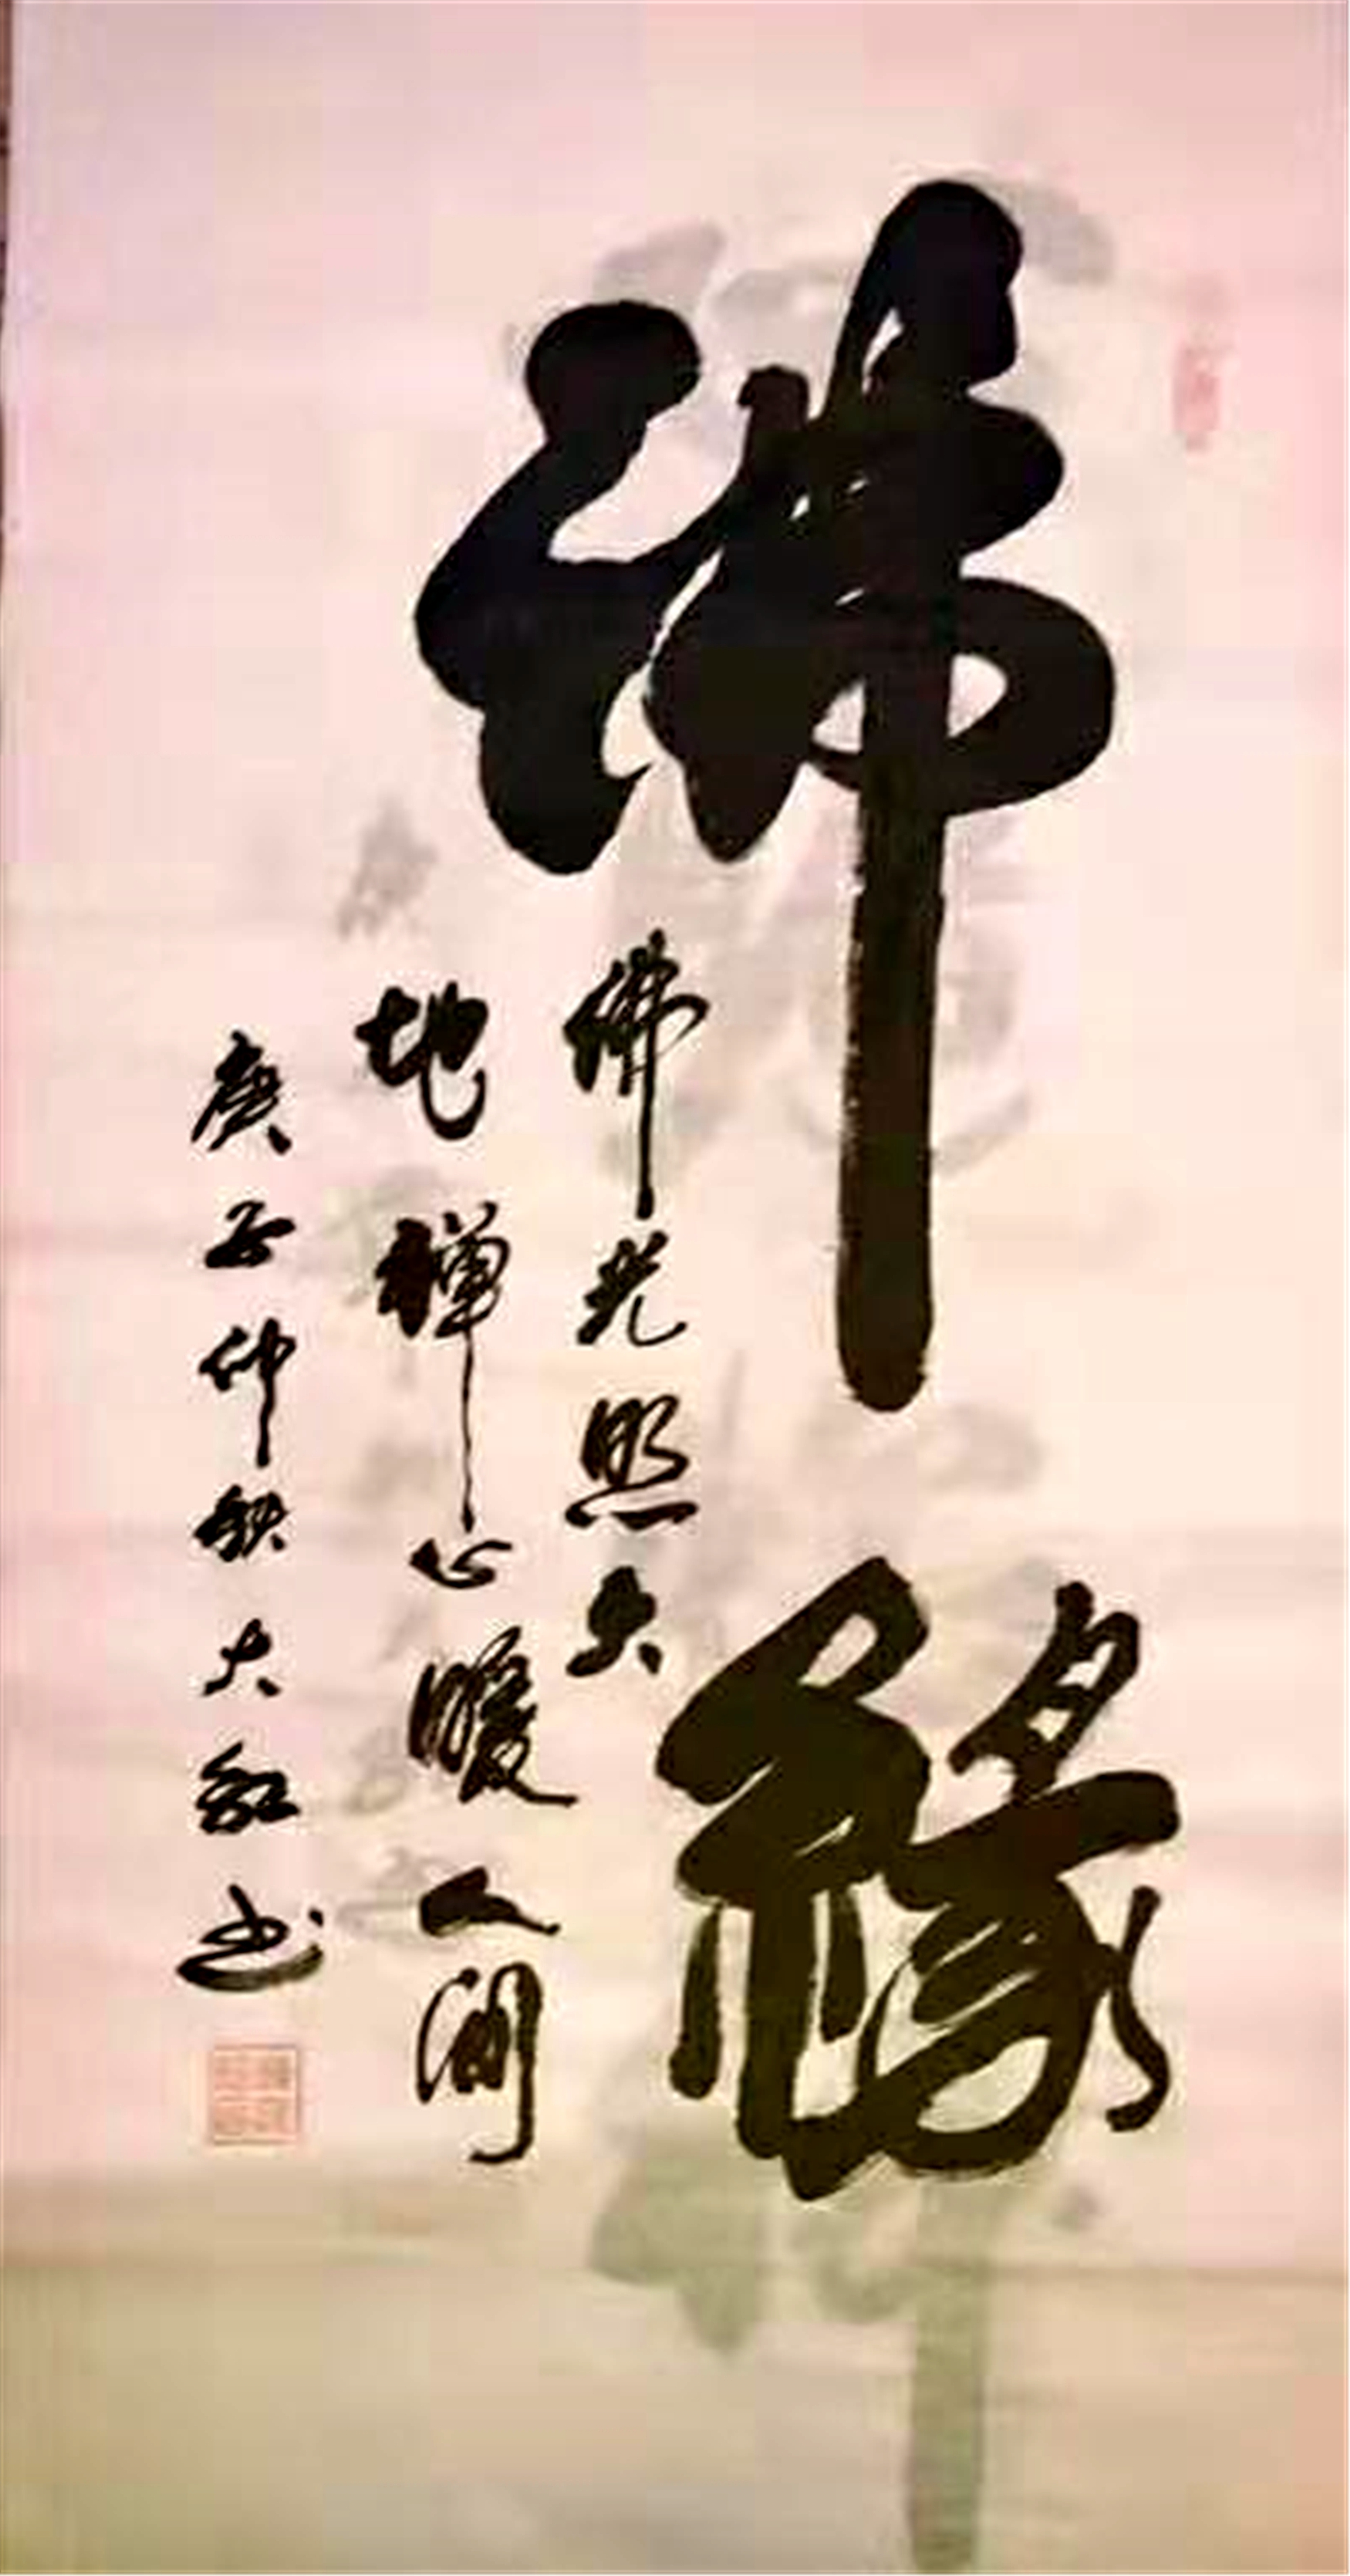 佛緣
佛光照大
地禪心暖人间
庚子仲秋大书